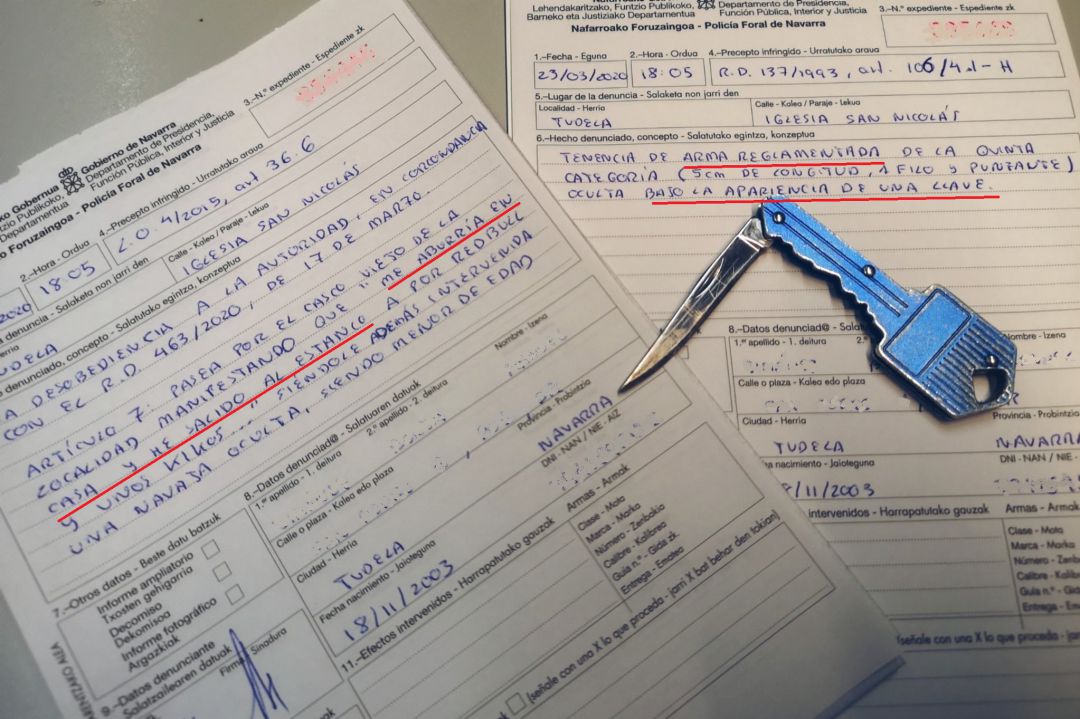 Gobierno de Navarra
Departamento de Presidencia,
Función Pública, Interior y Justicia
Foruzaingoa - Policía Foral de Navarra
3.-N.º expediente - Espediente zk
2.-Hora - Ordua
4.-Precepto infringido - Urratutako araua
18:05
L.O. 4/2015, art 36.6
Calle - Kalea / Paraje - Lekua
IGLESIA SAN NICOLÁS
denunciado, concepto - Salatutako egintza, konzeptua
A DESOBEDIENCIA A LA AUTORIDAD, EN CORCONDANCIA
CON EL R.D. 463/2020, DE 17 DE MARZO
ARTÍCULO 7. PASEA POR EL CASCO VIEJO DE LA
LOCALIDAD MANIFESTANDO QUE "ME ABURRÍA EN
CASA Y HE SALIDO AL ESTANCO A POR REDBULL
Y UNOS KIKOS...", SIÉNDOLE ADEMÁS INTERVENIDA
UNA NAVAJA OCULTA, SIENDO MENOR DE EDAD
7.-Otros datos - Beste datu batzuk
Informe ampliatorio
Txosten gehigarria
Decomiso
Dekomisoa
Informe fotográfico
Argazkiak
8.-Datos denunciad@ - Salaturaren datuak
1.er apellido - 1. deitura
2.º apellido - 2. deitura
Nombre - Izena
Calle o plaza - Kalea edo plaza
Provincia - Probintzia
NAVARRA
Ciudad - Herria
DNI - NAN / NIE - AIZ
TUDELA
Fecha nacimiento - Jaioteguna
18/11/2003
Armas - Armak
Clase - Mota
Marca - Marka
Número - Zenbakia
Calibre - Kalibrea
Guía n.º - Gida zk
Entrega - Ematea
9.-Datos denunciante
Salatzailearen datuak
Firma - Sinadura
11.-Efectos intervenidos - Harrapatutako gauzak
(señale con una X lo que proceda - jarri X bat behar den tokian)
Lehendakaritzako, Funtzio Publikoko,
Barneko eta Justiziako Departamentua
Departamento de Presidencia,
Función Pública, Interior y Justicia
Nafarroako Foruzaingoa - Policía Foral de Navarra
3.-N.º expediente - Espediente zk
1.-Fecha - Eguna
2.-Hora - Ordua
4.-Precepto infringido - Urratutako araua
23/03/2020
18:05
R.D. 137/1993, art. 106/4.1-H
5.-Lugar de la denuncia - Salaketa non jarri den
Localidad - Herria
Calle - Kalea / Paraje - Lekua
TUDELA
IGLESIA SAN NICOLÁS
6.-Hecho denunciado, concepto - Salatutako egintza, konzeptua
TENENCIA DE ARMA REGLAMENTADA DE LA QUINTA
CATEGORÍA (5cm DE LONGITUD, 1 FILO Y PUNZANTE)
OCULTA BAJO LA APARIENCIA DE UNA LLAVE.
8.-Datos denunciad@
1.er apellido - 1. deitura
Nombre - Izena
Calle o plaza - Kalea edo plaza
Provincia - Probintzia
Ciudad - Herria
TUDELA
NAVARRA
nacimiento - Jaioteguna
DNI - NAN / NIE
/11/2003
intervenidos - Harrapatutako gauzak
Armas - Armak
Clase - Mota
Marca - Marka
Número
Calibre
Guía n.º
Entrega
(señale con una X lo que proceda - jarri